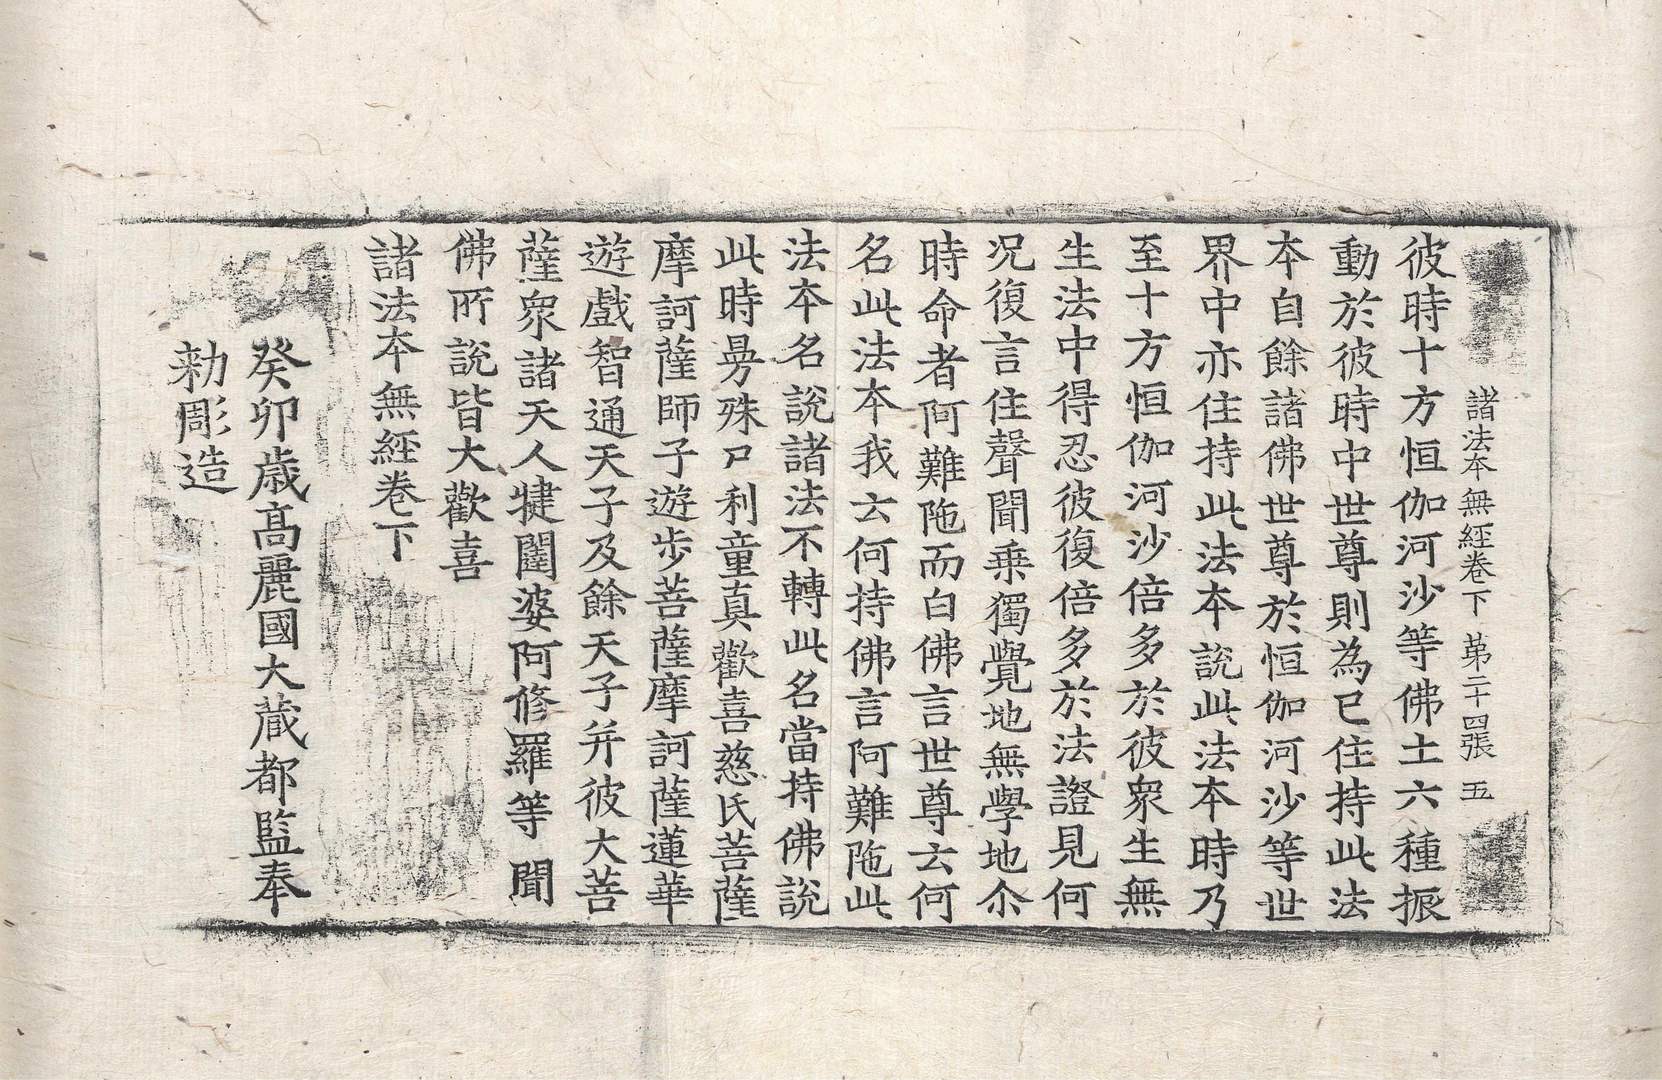 諸法夲無経卷下 苐二十四張 五
彼時十方恒伽河沙等佛土六種振
動於彼時中世尊則為已住持此法
夲自餘諸佛世尊於恒伽河沙等世
界中亦住持此法夲說此法夲時乃
至十方恒伽河沙倍多於彼衆生無
生法中得忍彼復倍多於法證見何
况復言住聲聞乗獨覺地無學地尒
時命者阿難陁而白佛言世尊云何
名此法夲我云何持佛言阿難陁此
法夲名說諸法不轉此名當持佛說
此時曼殊尸利童真歡喜慈氏菩薩
摩訶薩師子遊步菩薩摩訶薩蓮華
遊戲智通天子及餘天子并彼大菩
薩衆諸天人犍闥婆阿修羅等聞
佛所說皆大歡喜
諸法夲無経卷下
癸卯歲髙麗國大藏都監奉
勑彫造